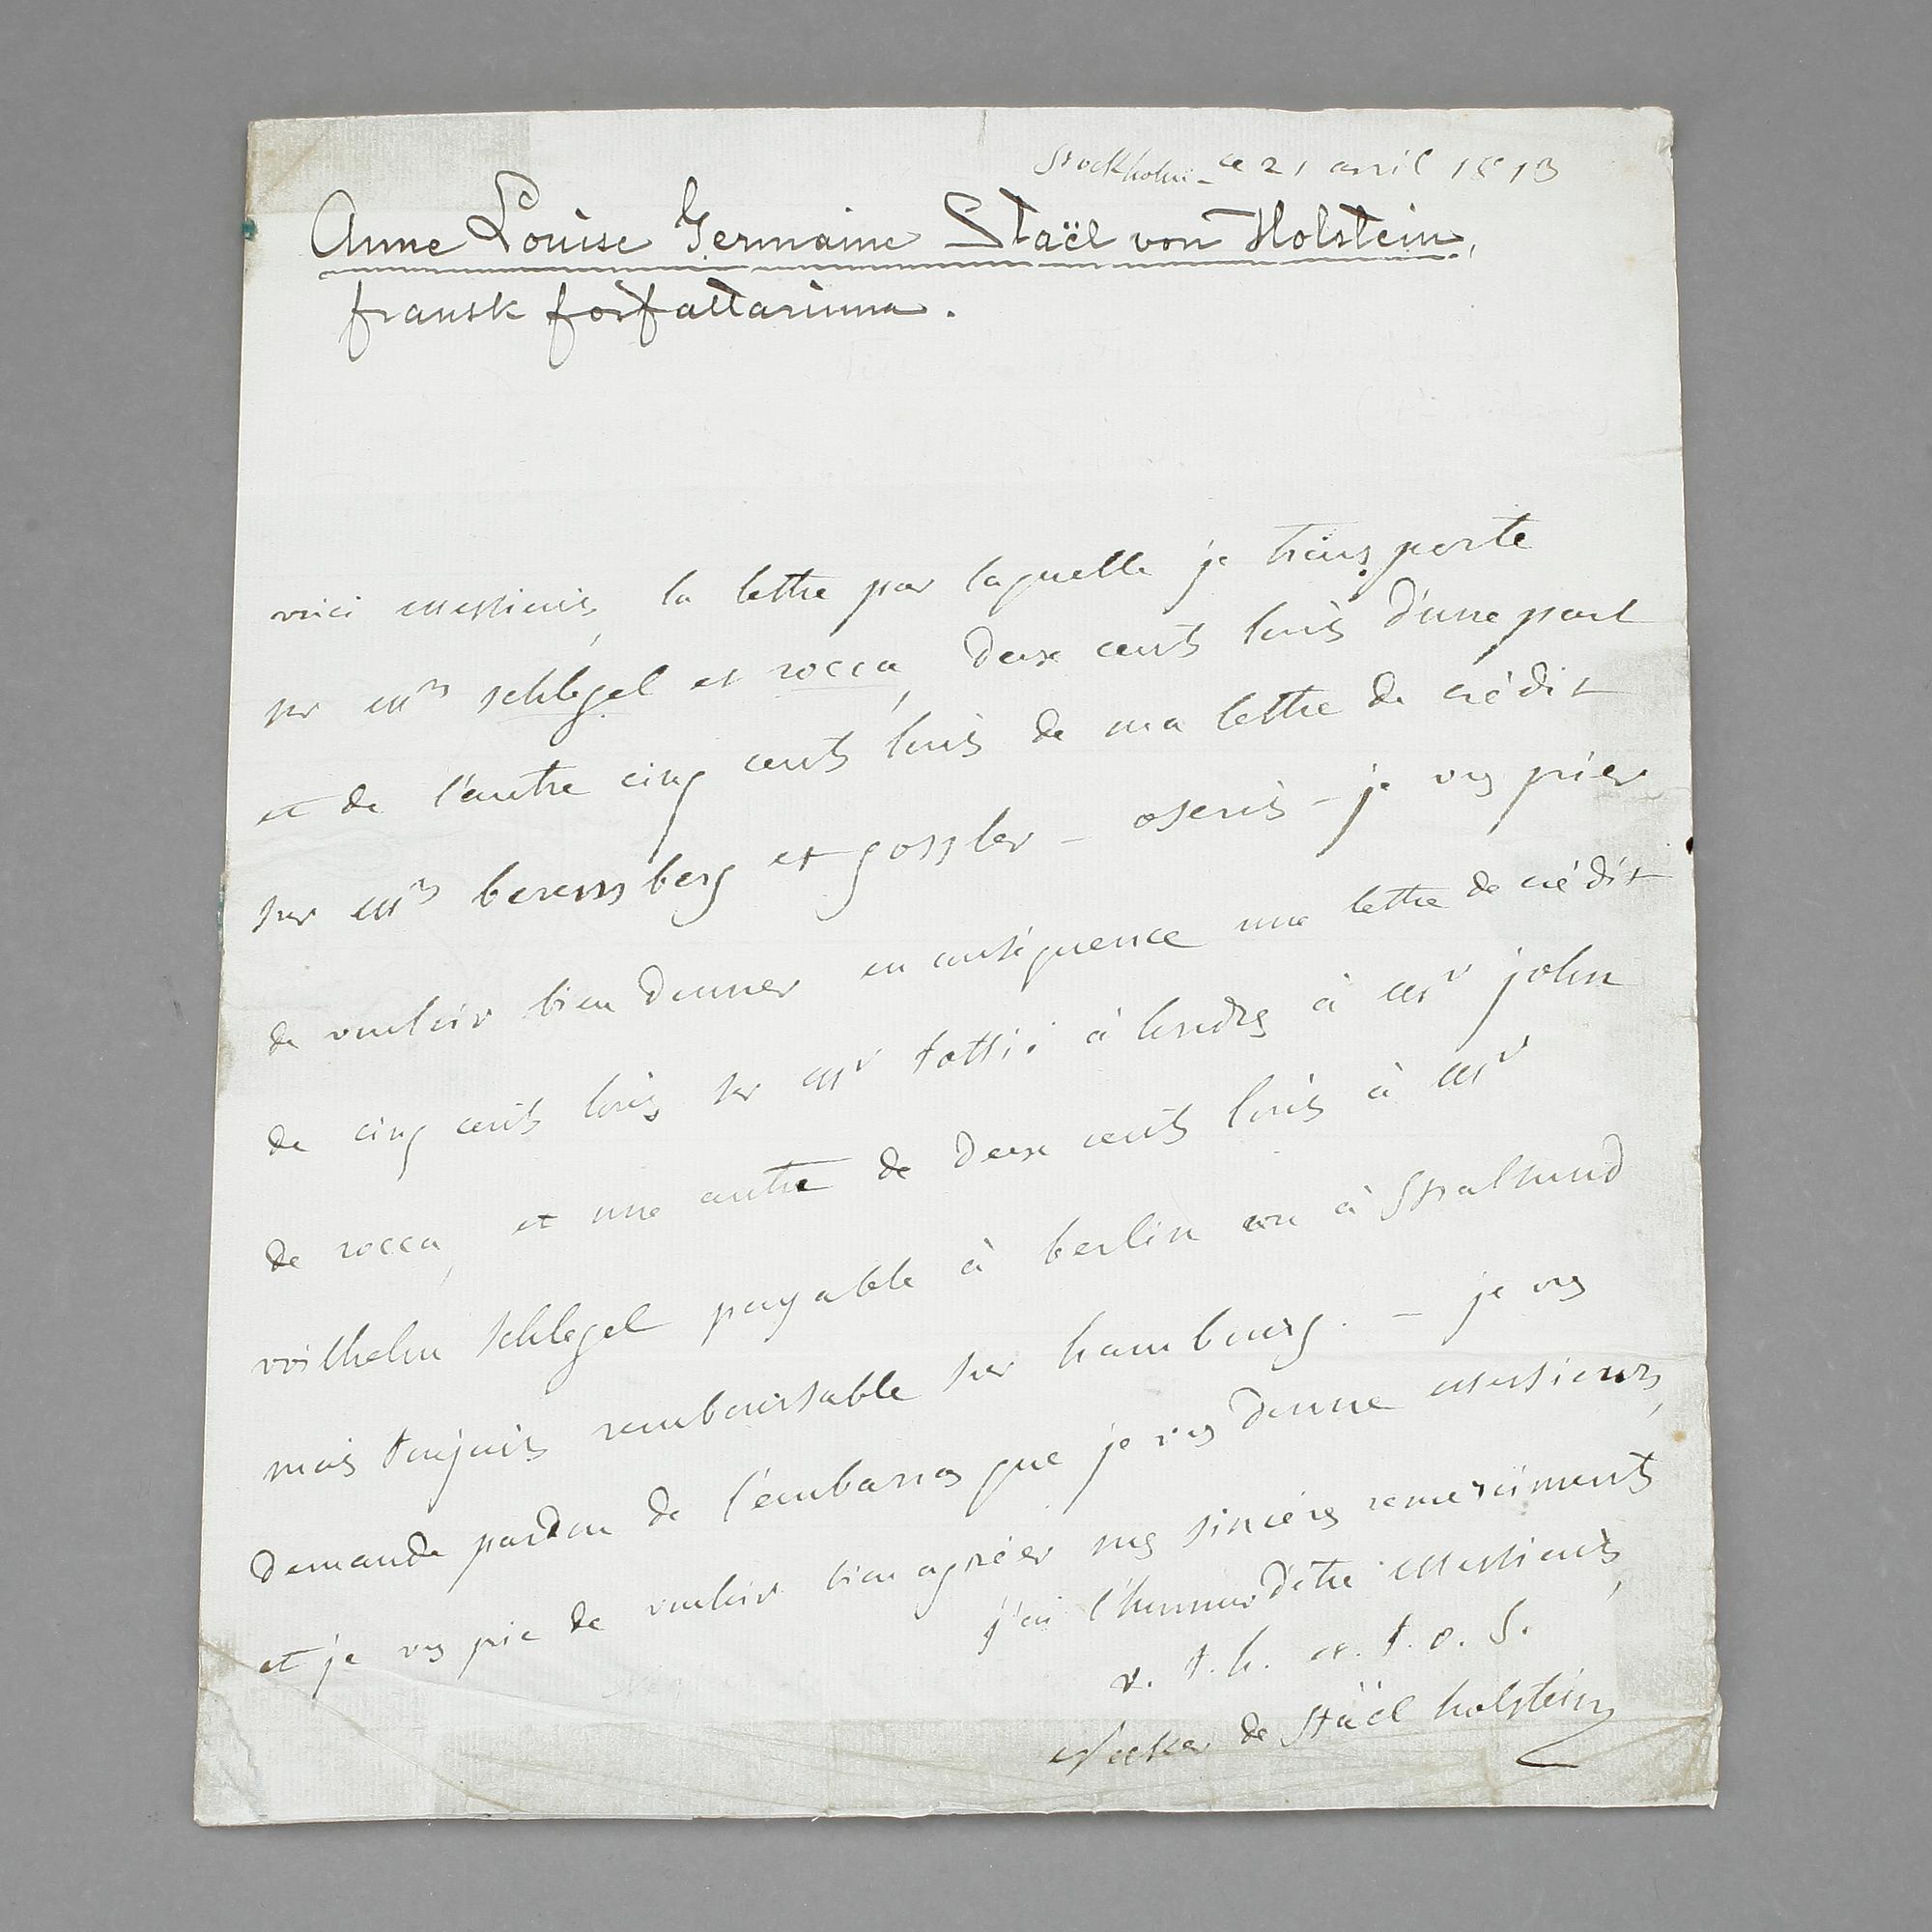 Stockholm - ce 21 avril 1813
Anne Louise Germaine Staël von Holstein,
fransk författarinna.
voici messieurs, la lettre par laquelle je transporte
sur mrs schlegel et rocca, deux cents louis d'une part
et de l'autre cinq cents louis de ma lettre de crédit
sur mrs berensberg et gossler - oserois-je vs prier
de vouloir bien donner en conséquence une lettre de crédit
de cinq cents louis sur mr tottie à londres à mr john
de rocca, et une autre de deux cents louis à mr
wilhelm schlegel payable à berlin ou à Stralsund
mais toujours remboursable sur hambourg. - je vs
demande pardon de l'embarras que je vs donne messieurs,
et je vs prie de vouloir bien agréer mes sincères remerciments
j'ai l'honneur d'etre messieurs,
v. t. h. et. t. o. S.
Necker de Staël holstein